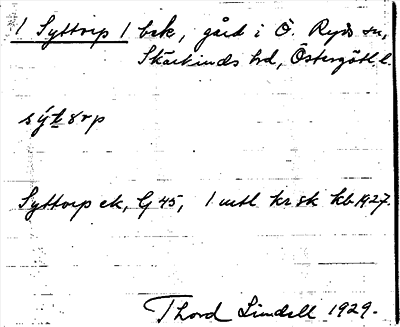 1 Syttorp / bsk, gård i Ö. Ryds sn,
Skärkinds hd, Östergötl. l.
Syttorp ek, G 45, 1 mtl kr sk kb 1927.
Thord Lindell 1929.